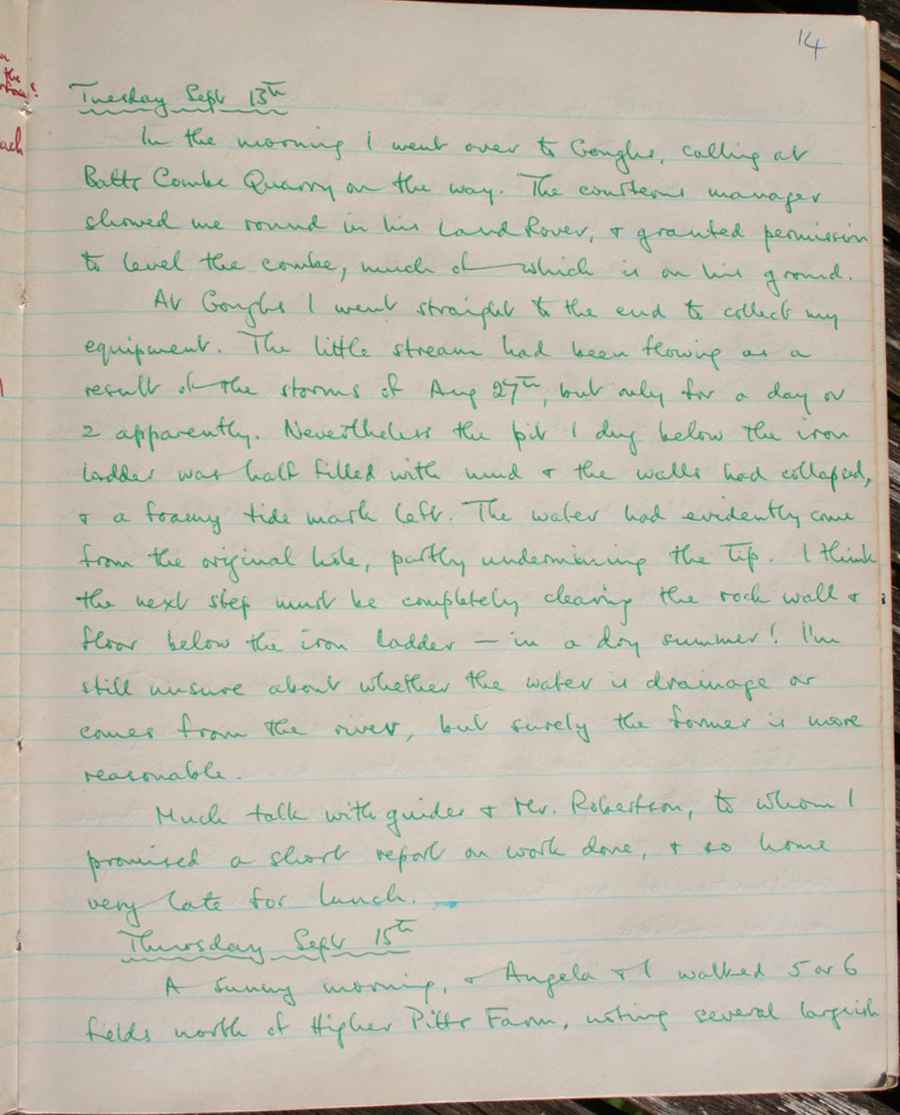 14
Tuesday Sept 13th
In the morning I went over to Goughs, calling at
Batts Combe Quarry on the way. The courteous manager
showed me round in his Land Rover, & granted permission
to level the combe, much of which is on his ground.
At Goughs I went straight to the end to collect my
equipment. The little stream had been flowing as a
result of the storms of Aug 27th, but only for a day or
2 apparently. Nevertheless the pit I dug below the iron
ladder was half filled with mud & the walls had collapsed,
& a foamy tide mark left. The water had evidently come
from the original hole, partly undermining the tip. I think
the next step must be completely clearing the rock wall &
floor below the iron ladder – in a dry summer! I'm
still unsure about whether the water is drainage or
comes from the river, but surely the former is more
reasonable.
Much talk with guides & Mr. Robertson, to whom I
promised a short report on work done, & so home
very late for lunch.
Thursday Sept 15th
A sunny morning, & Angela & I walked 5 or 6
fields north of Higher Pitts Farm, noting several largish
the
each